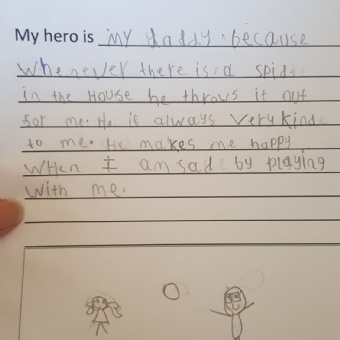 My hero is my daddy because
Whenever there is a spider
in the House he throws it out
for me. He is always very kind
to me. He makes me happy
WHen I am sad by playing
with me.